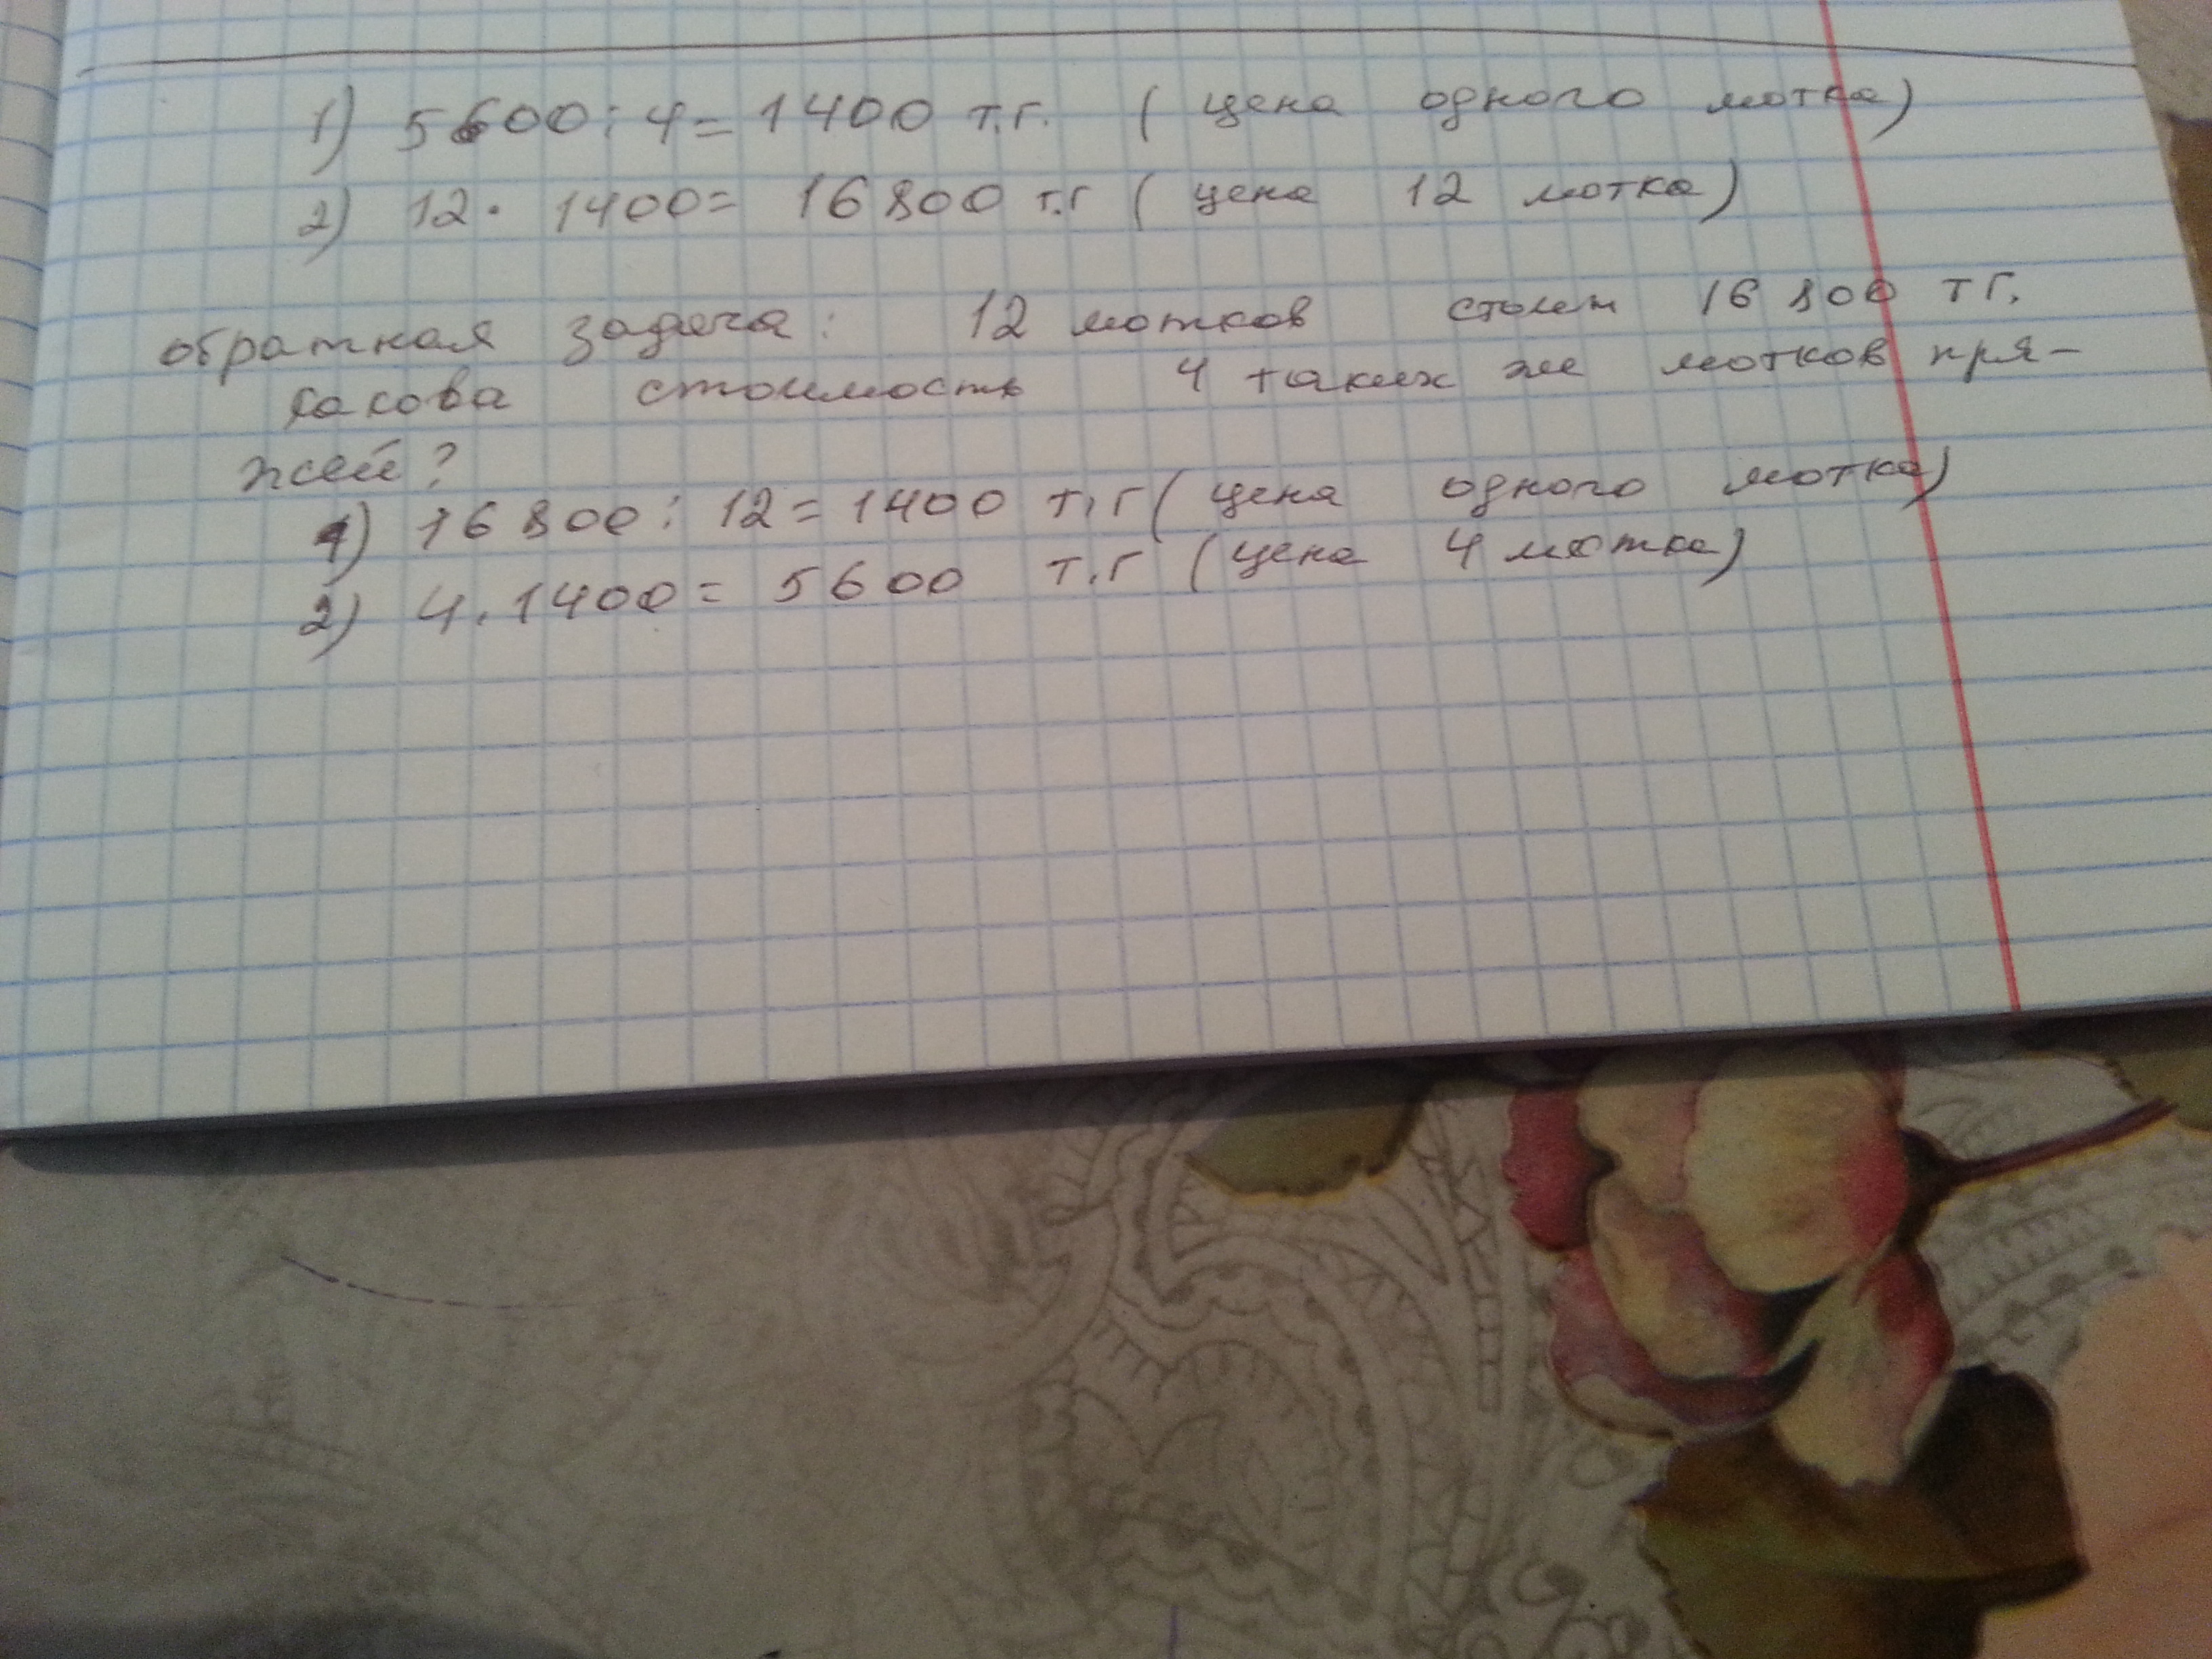 1) 5600 : 4 = 1400 т.г. ( цена одного мотка)
2) 12 · 1400 = 16 800 т.г ( цена 12 мотка)
обратная задача: 12 мотков стоит 16 800 тг.
какова стоимость 4 таких же мотков пря-
жей?
1) 16 800 : 12 = 1400 т.г ( цена одного мотка)
2) 4 . 1400 = 5600 т.г ( цена 4 мотка)